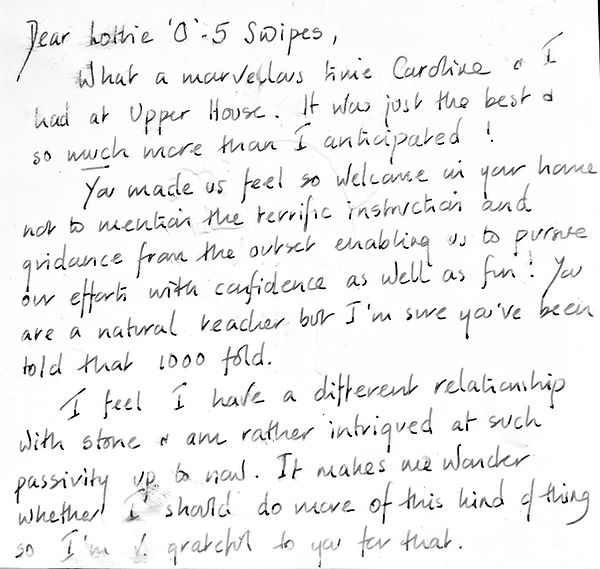 Dear Lottie 'O'-5 Swipes,
What a marvellous time Caroline & I
had at Upper House. It was just the best &
so much more than I anticipated!
You made us feel so welcome in your home
not to mention the terrific instruction and
guidance from the outset enabling us to pursue
our efforts with confidence as well as fun! You
are a natural teacher but I'm sure you've been
told that 1000 fold.
I feel I have a different relationship
with stone & am rather intrigued at such
passivity up to now. It makes me wonder
whether I should do more of this kind of thing
so I'm v. grateful to you for that.